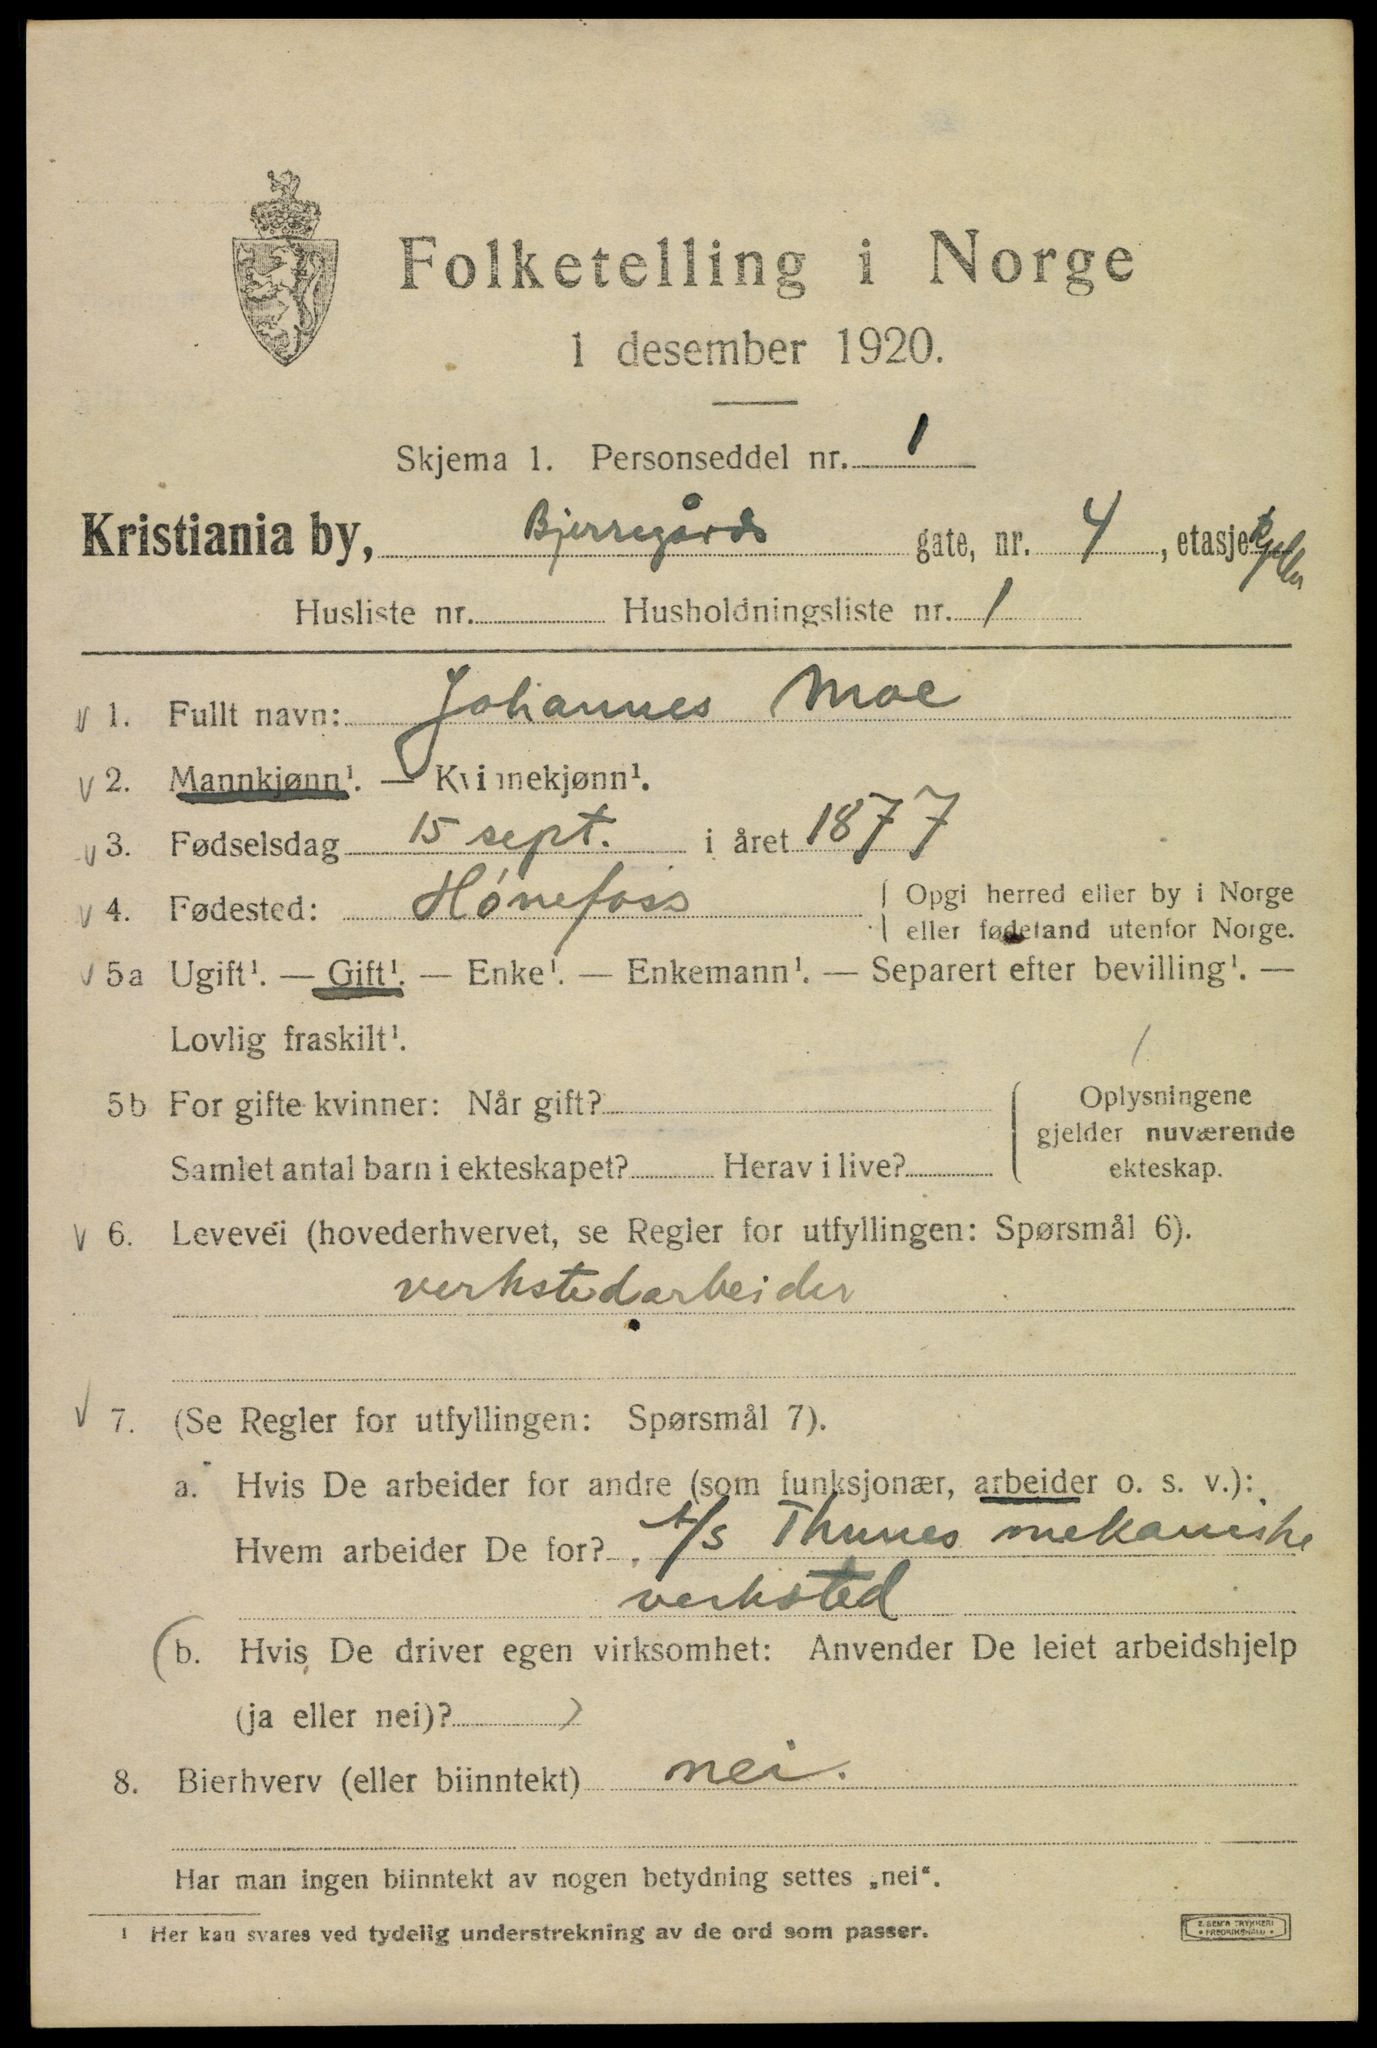 Folketelling i Norge
1 desember 1920.
Skjema 1. Personseddel nr. 1
Kristiania by, Bjerregårds gate, nr. 4, etasje kjeller
Husliste nr. Husholdningsliste nr. 1
v 1. Fullt navn: Johannes Moe
v 2. Mannkjønn¹. — Kvinnekjønn¹.
v 3. Fødselsdag 15 sept. i året 1877
v 4. Fødested: Hønefoss { Opgi herred eller by i Norge
eller fødeland utenfor Norge.
v 5a Ugift¹. — Gift¹. — Enke¹. — Enkemann¹. — Separert efter bevilling¹. —
Lovlig fraskilt¹.
5b For gifte kvinner: Når gift? { Oplysningene
gjelder nuværende
Samlet antal barn i ekteskapet? Herav i live? ekteskap.
v 6. Levevei (hovederhvervet, se Regler for utfyllingen: Spørsmål 6).
verkstedarbeider
v 7. (Se Regler for utfyllingen: Spørsmål 7).
a. Hvis De arbeider for andre (som funksjonær, arbeider o. s. v.):
Hvem arbeider De for? A/S Thunes mekaniske
verksted
(b. Hvis De driver egen virksomhet: Anvender De leiet arbeidshjelp
(ja eller nei)? )
8. Bierhverv (eller biinntekt) nei.
Har man ingen biinntekt av nogen betydning settes „nei“.
¹ Her kan svares ved tydelig understrekning av de ord som passer.